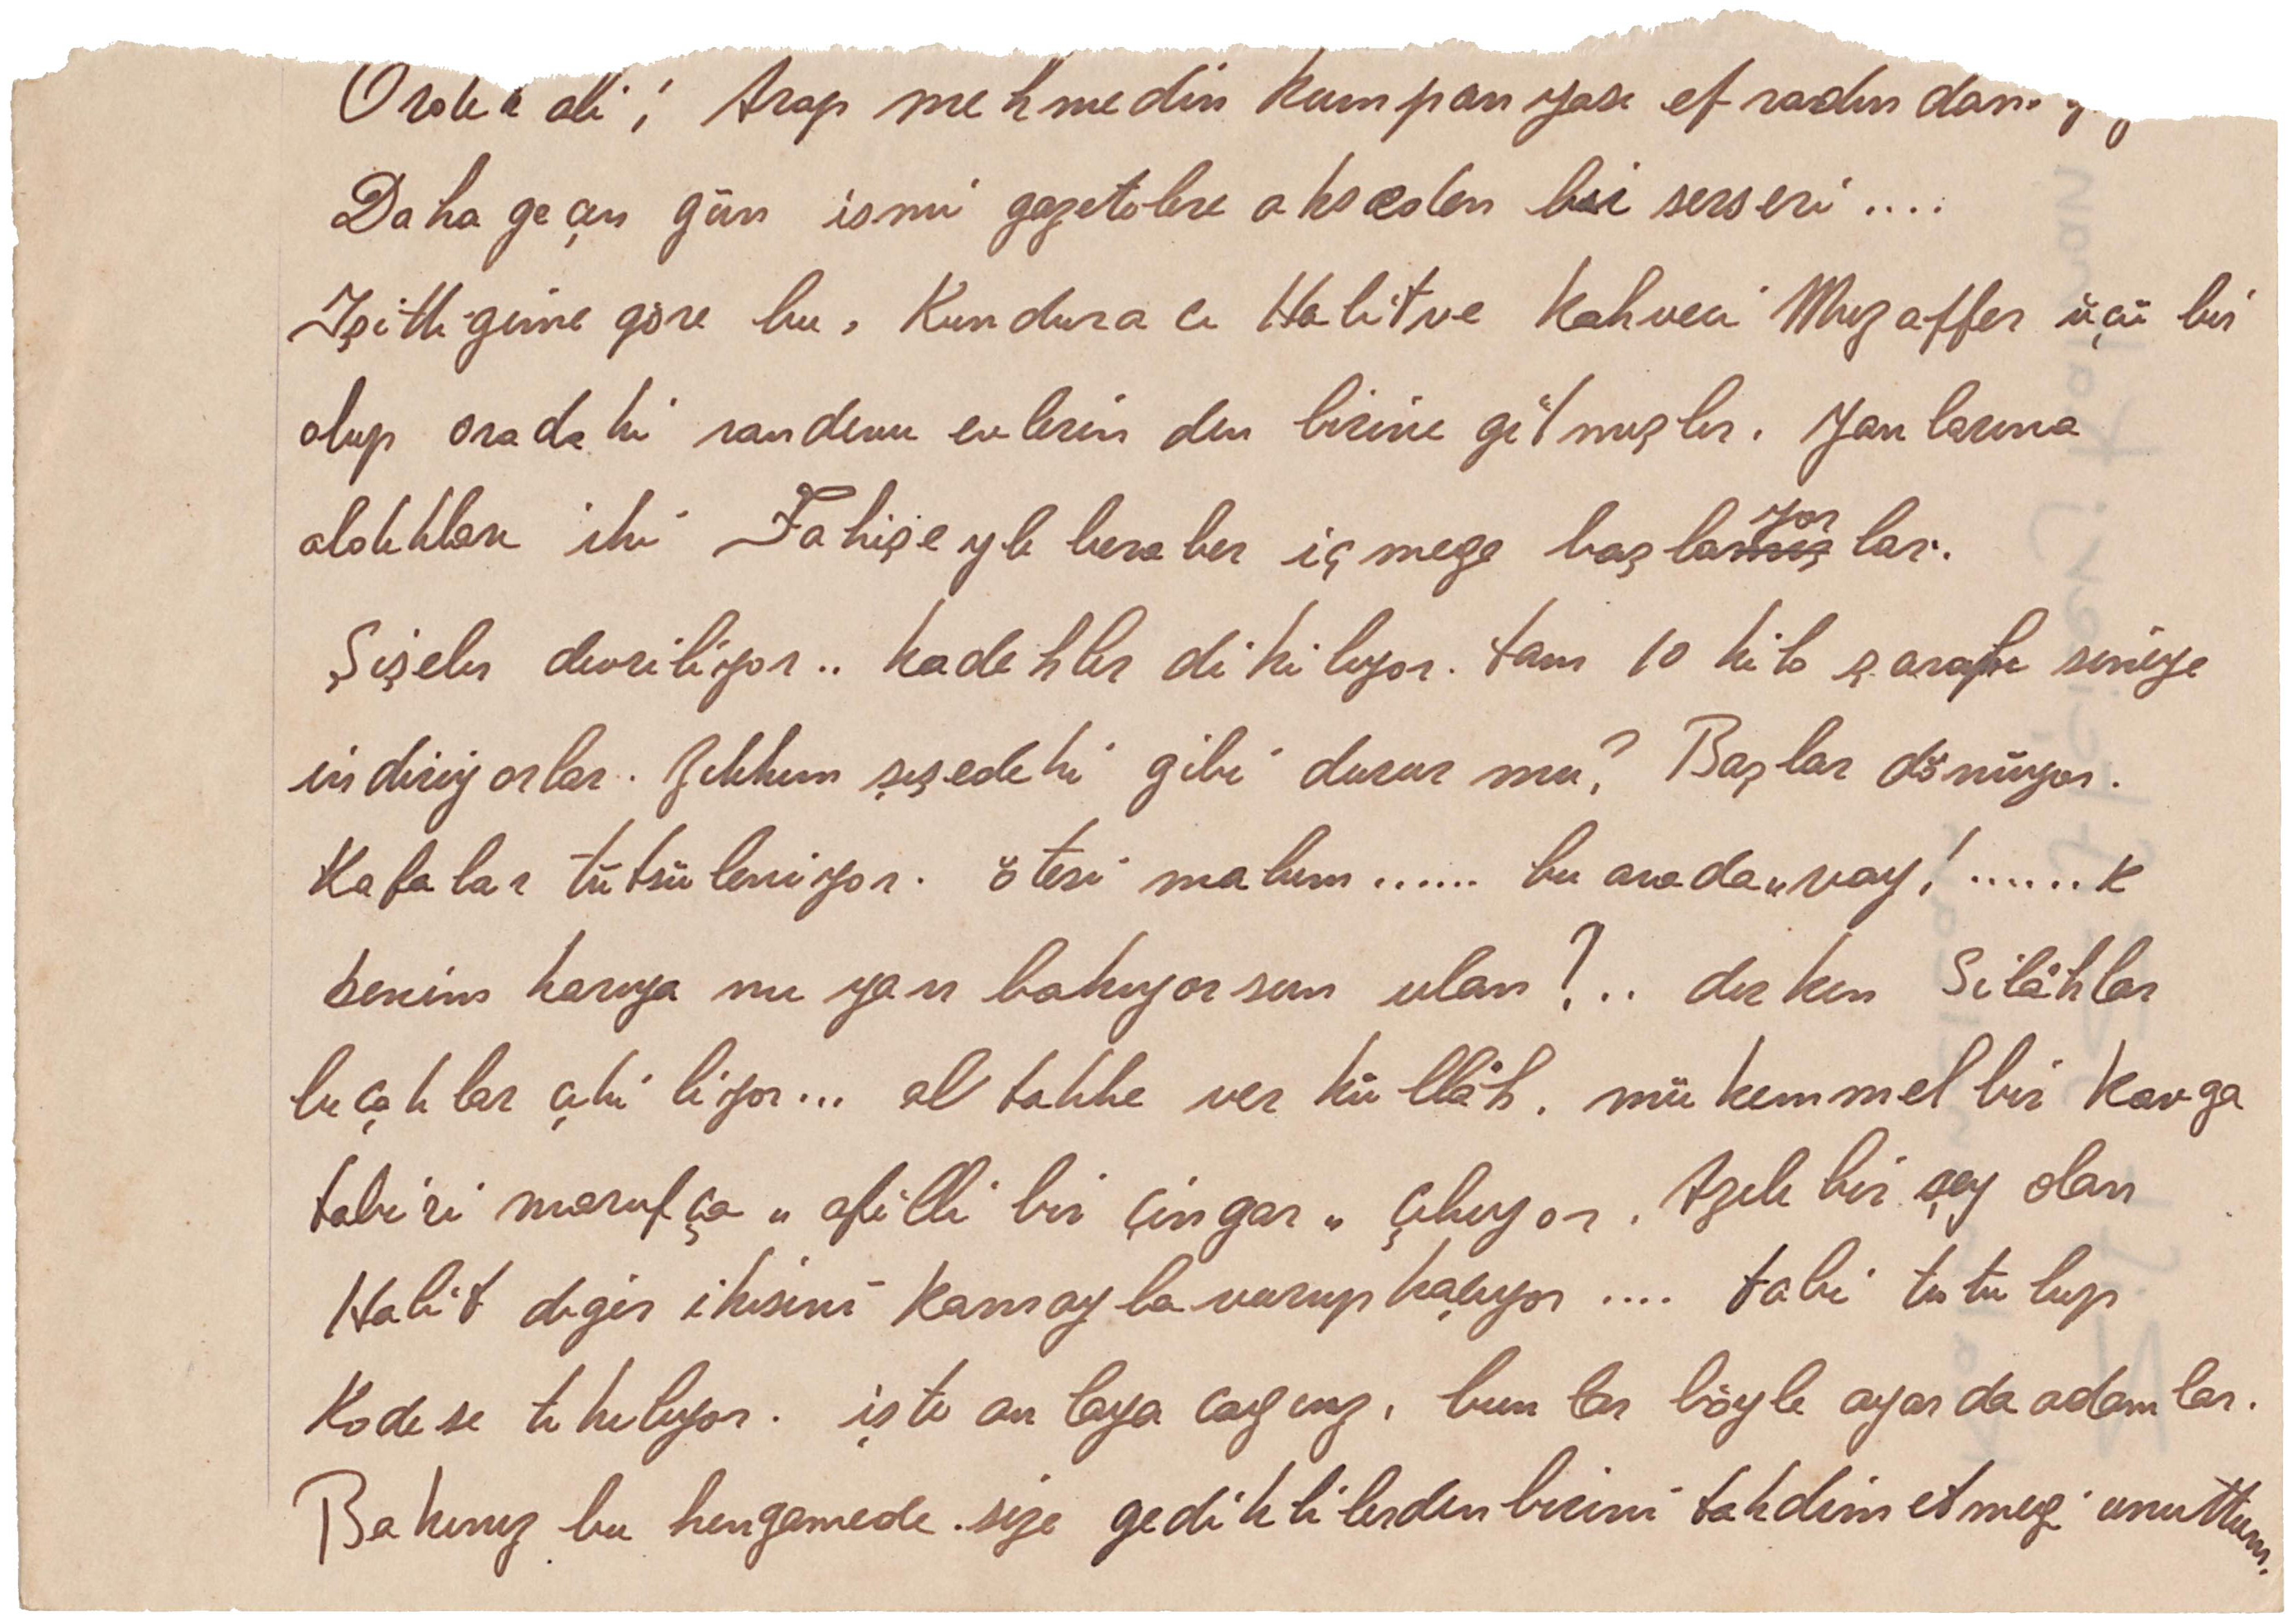 ali; Arap mehmedin kumpanyası efradından.
Daha geçen gün ismi gazetelere akseden bir serseri ....
İşittiğime göre bu, Kunduracı Halit ve Kahveci Muzaffer üçü bir
olup oradaki randevu evlerinden birine gitmişler. Yanlarına
aldıkları iki Fahişeyle beraber içmege başlamış yor lar.
Şişeler devriliyor.. kadehler dikiliyor. tam 10 kilo şarabı sineye
indiriyorlar. Zıkkım şişedeki gibi durur mu? Başlar dönüyor.
Kafalar tütsüleniyor. öteri malum ...... bu arada „vay! ...... K
benim karıya mı yan bakıyorsun ulan?.. derken Silâhlar
bıçaklar çekiliyor... al takke ver küllâh. mükemmel bir kavga
tabiri marufça „ afilli bir çıngar „ çıkıyor. Azılı bir şey olan
Halit diğer ikisini kamayla vurup kaçıyor .... tabi tutulup
Kodese tıkılıyor. işte anlayacağınız, bunlar böyle ayarda adamlar.
Bakınız bu hengamede size gediklilerden birini takdim etmegi unuttum.